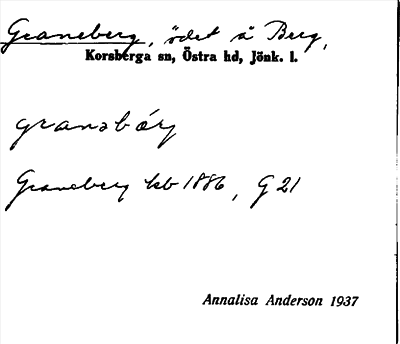 Graneberg, ödet å Berg,
Korsberga sn, Östra hd, Jönk. l.
granəbærj
Graneberg kb 1886, G 21
Annalisa Anderson 1937